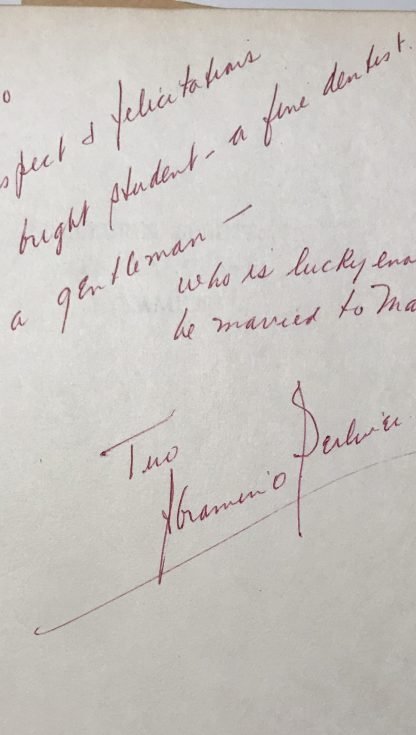 o
spect & felicitations
bright student - a fine dentist.
a gentleman -
who is lucky eno
be married to Ma
Tuo